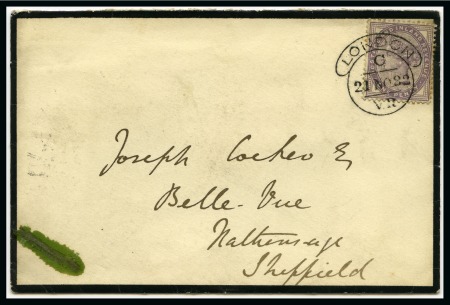 LONDON
C
21 NO 82
V.R
Joseph Cocker E
Belle-Vue
Nathersage
Sheffield